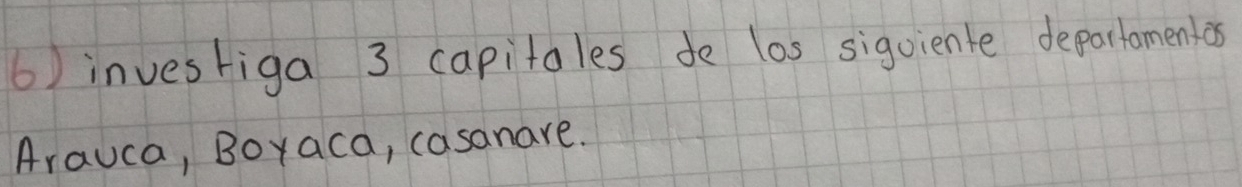 6) investiga 3 capitales de los siguiente departamentos
Arauca, Boyaca, casanare.